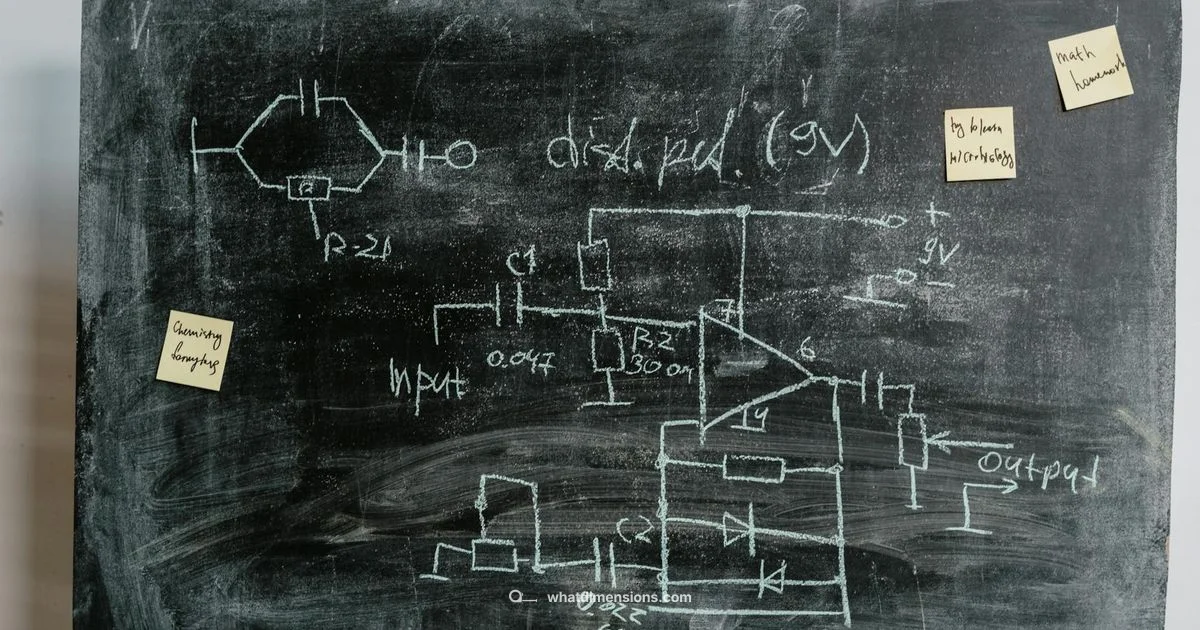 math
homework
dist. ped. (9V)
microbiology
R-21
+
9V
-
C1
R2
7
0.047
300
6
Input
Chemistry
4
output
C2
whatdimensions.com
0.022